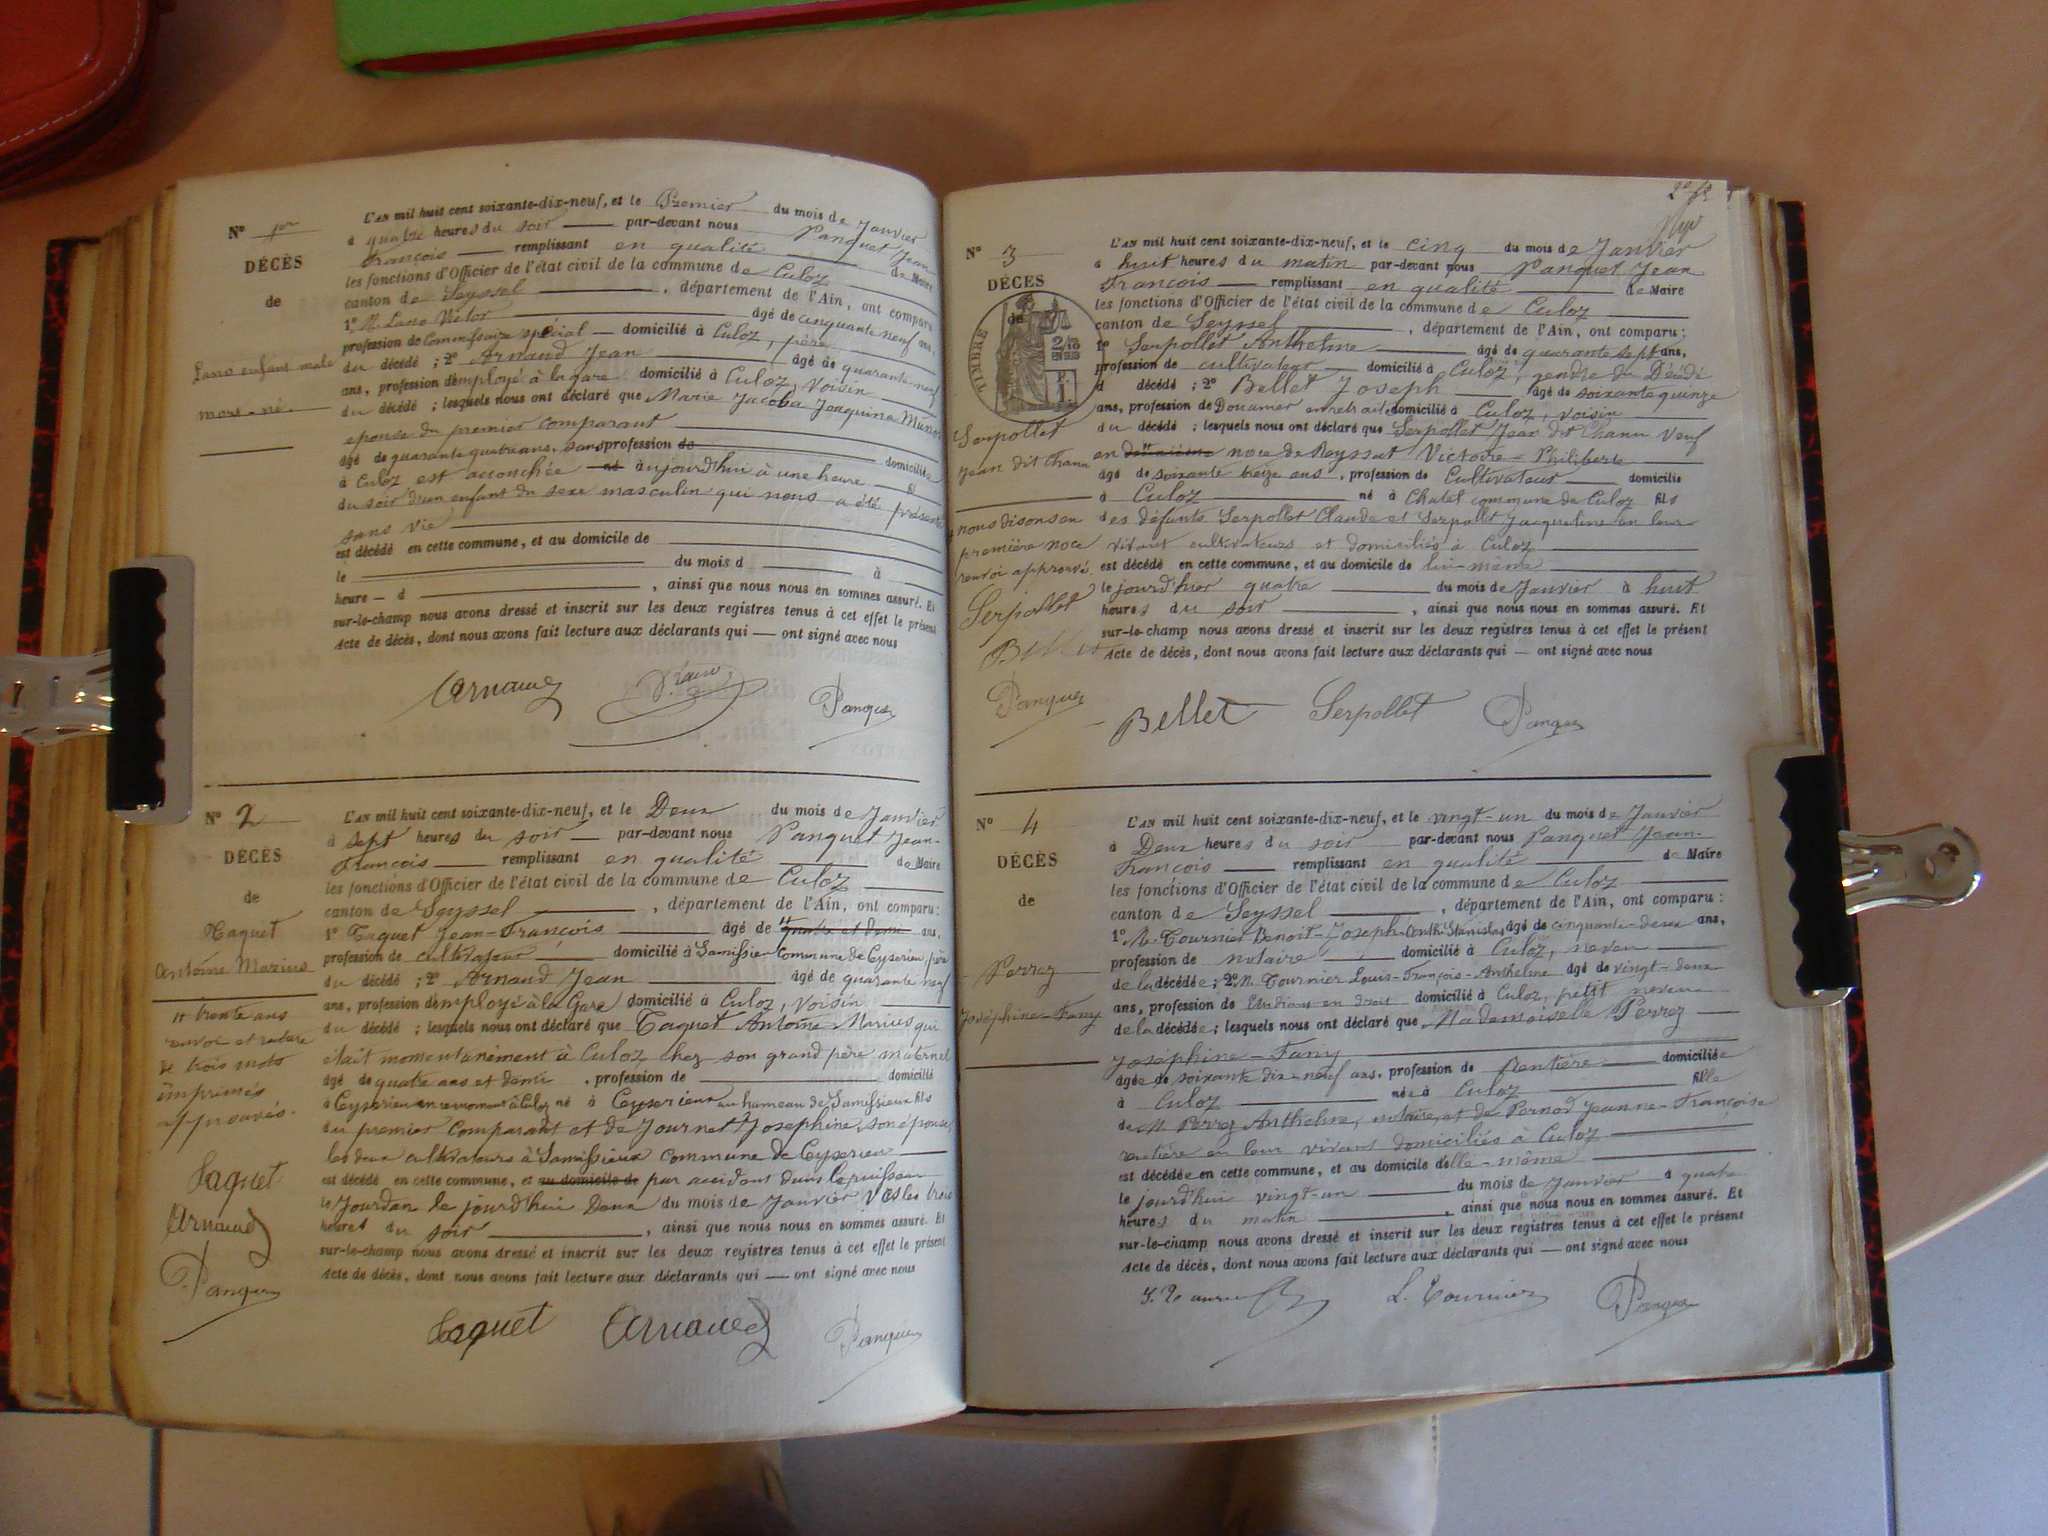 N° 1er
DÉCÈS
de
Lano enfant male
mort-né.
L'AN mil huit cent soixante-dix-neuf, et le Premier du mois de Janvier
à quatre heures du soir par-devant nous Panquet Jean
François remplissant en qualité de Maire
les fonctions d'Officier de l'état civil de la commune de Culoz
canton de Seyssel , département de l'Ain, ont comparu
1° M. Lano Victor âgé de cinquante neuf ans,
profession de Commissaire spécial domicilié à Culoz, père
du décédé ; 2° Arnaud Jean âgé de quarante-neuf
ans, profession d'employé à la gare domicilié à Culoz, voisin
du décédé ; lesquels nous ont déclaré que Marie Jacoba Joaquina Munos
épouse du premier comparant
âgé de quarante quatre ans, sans profession de domiciliée
à Culoz est accouchée né aujourd'hui à une heure fil
du soir d'un enfant du sexe masculin qui nous a été présenté
sans vie
est décédé en cette commune, et au domicile de
le du mois d à
heure d , ainsi que nous nous en sommes assuré. Et
sur-le-champ nous avons dressé et inscrit sur les deux registres tenus à cet effet le présent
Acte de décès, dont nous avons fait lecture aux déclarants qui — ont signé avec nous
Arnaud V. Lano Panquet
N° 2
DÉCÈS
de
Taquet
Antoine Marius
# trente ans
renvoi et rature
de trois mots
imprimés
approuvés.
Taquet
Arnaud
Panquet
L'AN mil huit cent soixante-dix-neuf, et le Deux du mois de Janvier
à sept heures du soir par-devant nous Panquet Jean-
François remplissant en qualité de Maire
les fonctions d'Officier de l'état civil de la commune de Culoz
canton de Seyssel , département de l'Ain, ont comparu :
1° Taquet Jean-François âgé de # quatre et demi ans,
profession de cultivateur domicilié à Samissieu Commune de Ceyserieu, père
du décédé ; 2° Arnaud Jean âgé de quarante neuf
ans, profession d'employé à la Gare domicilié à Culoz, voisin
du décédé ; lesquels nous ont déclaré que Taquet Antoine Marius qui
était momentanément à Culoz chez son grand père maternel
âgé de quatre ans et demi , profession de domicilié
à Ceyserieu en ce moment à Culoz né à Ceyserieu au hameau de Samissieux fils
du premier comparant et de Journet Josephine, son épouse,
les deux cultivateurs à Samissieux commune de Ceyserieu
est décédé en cette commune, et au domicile de par accident dans le puisseau
le Jourdan le jourd'hui Deux du mois de Janvier vers les trois
heures du soir , ainsi que nous nous en sommes assuré. Et
sur-le-champ nous avons dressé et inscrit sur les deux registres tenus à cet effet le présent
Acte de décès, dont nous avons fait lecture aux déclarants qui — ont signé avec nous
Taquet Arnaud Panquet
N° 3
DÉCÈS
de
TIMBRE
Serpollet
Jean dit Chanu
# nous disons en
première noce
renvoi approuvé
Serpollet
Bellet
Panquet
L'AN mil huit cent soixante-dix-neuf, et le cinq du mois de Janvier
à huit heures du matin par-devant nous Panquet Jean
François remplissant en qualité de Maire
les fonctions d'Officier de l'état civil de la commune de Culoz
canton de Seyssel , département de l'Ain, ont comparu :
1° Serpollet Anthelme âgé de quarante sept ans,
profession de cultivateur domicilié à Culoz, gendre du Décédé
d décédé ; 2° Bellet Joseph âgé de soixante quinze
ans, profession de Douanier en retraite domicilié à Culoz, voisin
du décédé ; lesquels nous ont déclaré que Serpollet Jean dit Chanu Veuf
en # deuxième noce de Reyssat Victoire-Philiberte
âgé de soixante treize ans , profession de Cultivateur domicilié
à Culoz né à Chatel commune de Culoz fils
des défunts Serpollet Claude et Serpollet Jacqueline en leur
vivant cultivateurs et domiciliés à Culoz
est décédé en cette commune, et au domicile de lui-même
le jourd'hier quatre du mois de Janvier à huit
heures du soir , ainsi que nous nous en sommes assuré. Et
sur-le-champ nous avons dressé et inscrit sur les deux registres tenus à cet effet le présent
Acte de décès, dont nous avons fait lecture aux déclarants qui — ont signé avec nous
Bellet Serpollet Panquet
N° 4
DÉCÈS
de
Perrez
Joséphine-Fany
L'AN mil huit cent soixante-dix-neuf, et le vingt-un du mois de Janvier
à Deux heures du soir par-devant nous Panquet Jean-
François remplissant en qualité de Maire
les fonctions d'Officier de l'état civil de la commune de Culoz
canton de Seyssel , département de l'Ain, ont comparu :
1° M. Tournier Benoit-Joseph Stanislas âgé de cinquante-deux ans,
profession de notaire domicilié à Culoz, neveu
de la décédée ; 2° M. Tournier Louis-François-Anthelme âgé de vingt-deux
ans, profession de Etudiant en droit domicilié à Culoz, petit neveu
de la décédée ; lesquels nous ont déclaré que Mademoiselle Perrez
Joséphine-Fany
âgée de soixante dix-neuf ans, profession de Rentière domiciliée
à Culoz née à Culoz fille
de M Perrez Anthelme, notaire, et de Pernod Jeanne-Françoise
rentière en leur vivant domiciliés à Culoz
est décédée en cette commune, et au domicile d'elle-même
le jourd'hui vingt-un du mois de Janvier à quatre
heures du matin , ainsi que nous nous en sommes assuré. Et
sur-le-champ nous avons dressé et inscrit sur les deux registres tenus à cet effet le présent
Acte de décès, dont nous avons fait lecture aux déclarants qui — ont signé avec nous
L. Tournier Panquet